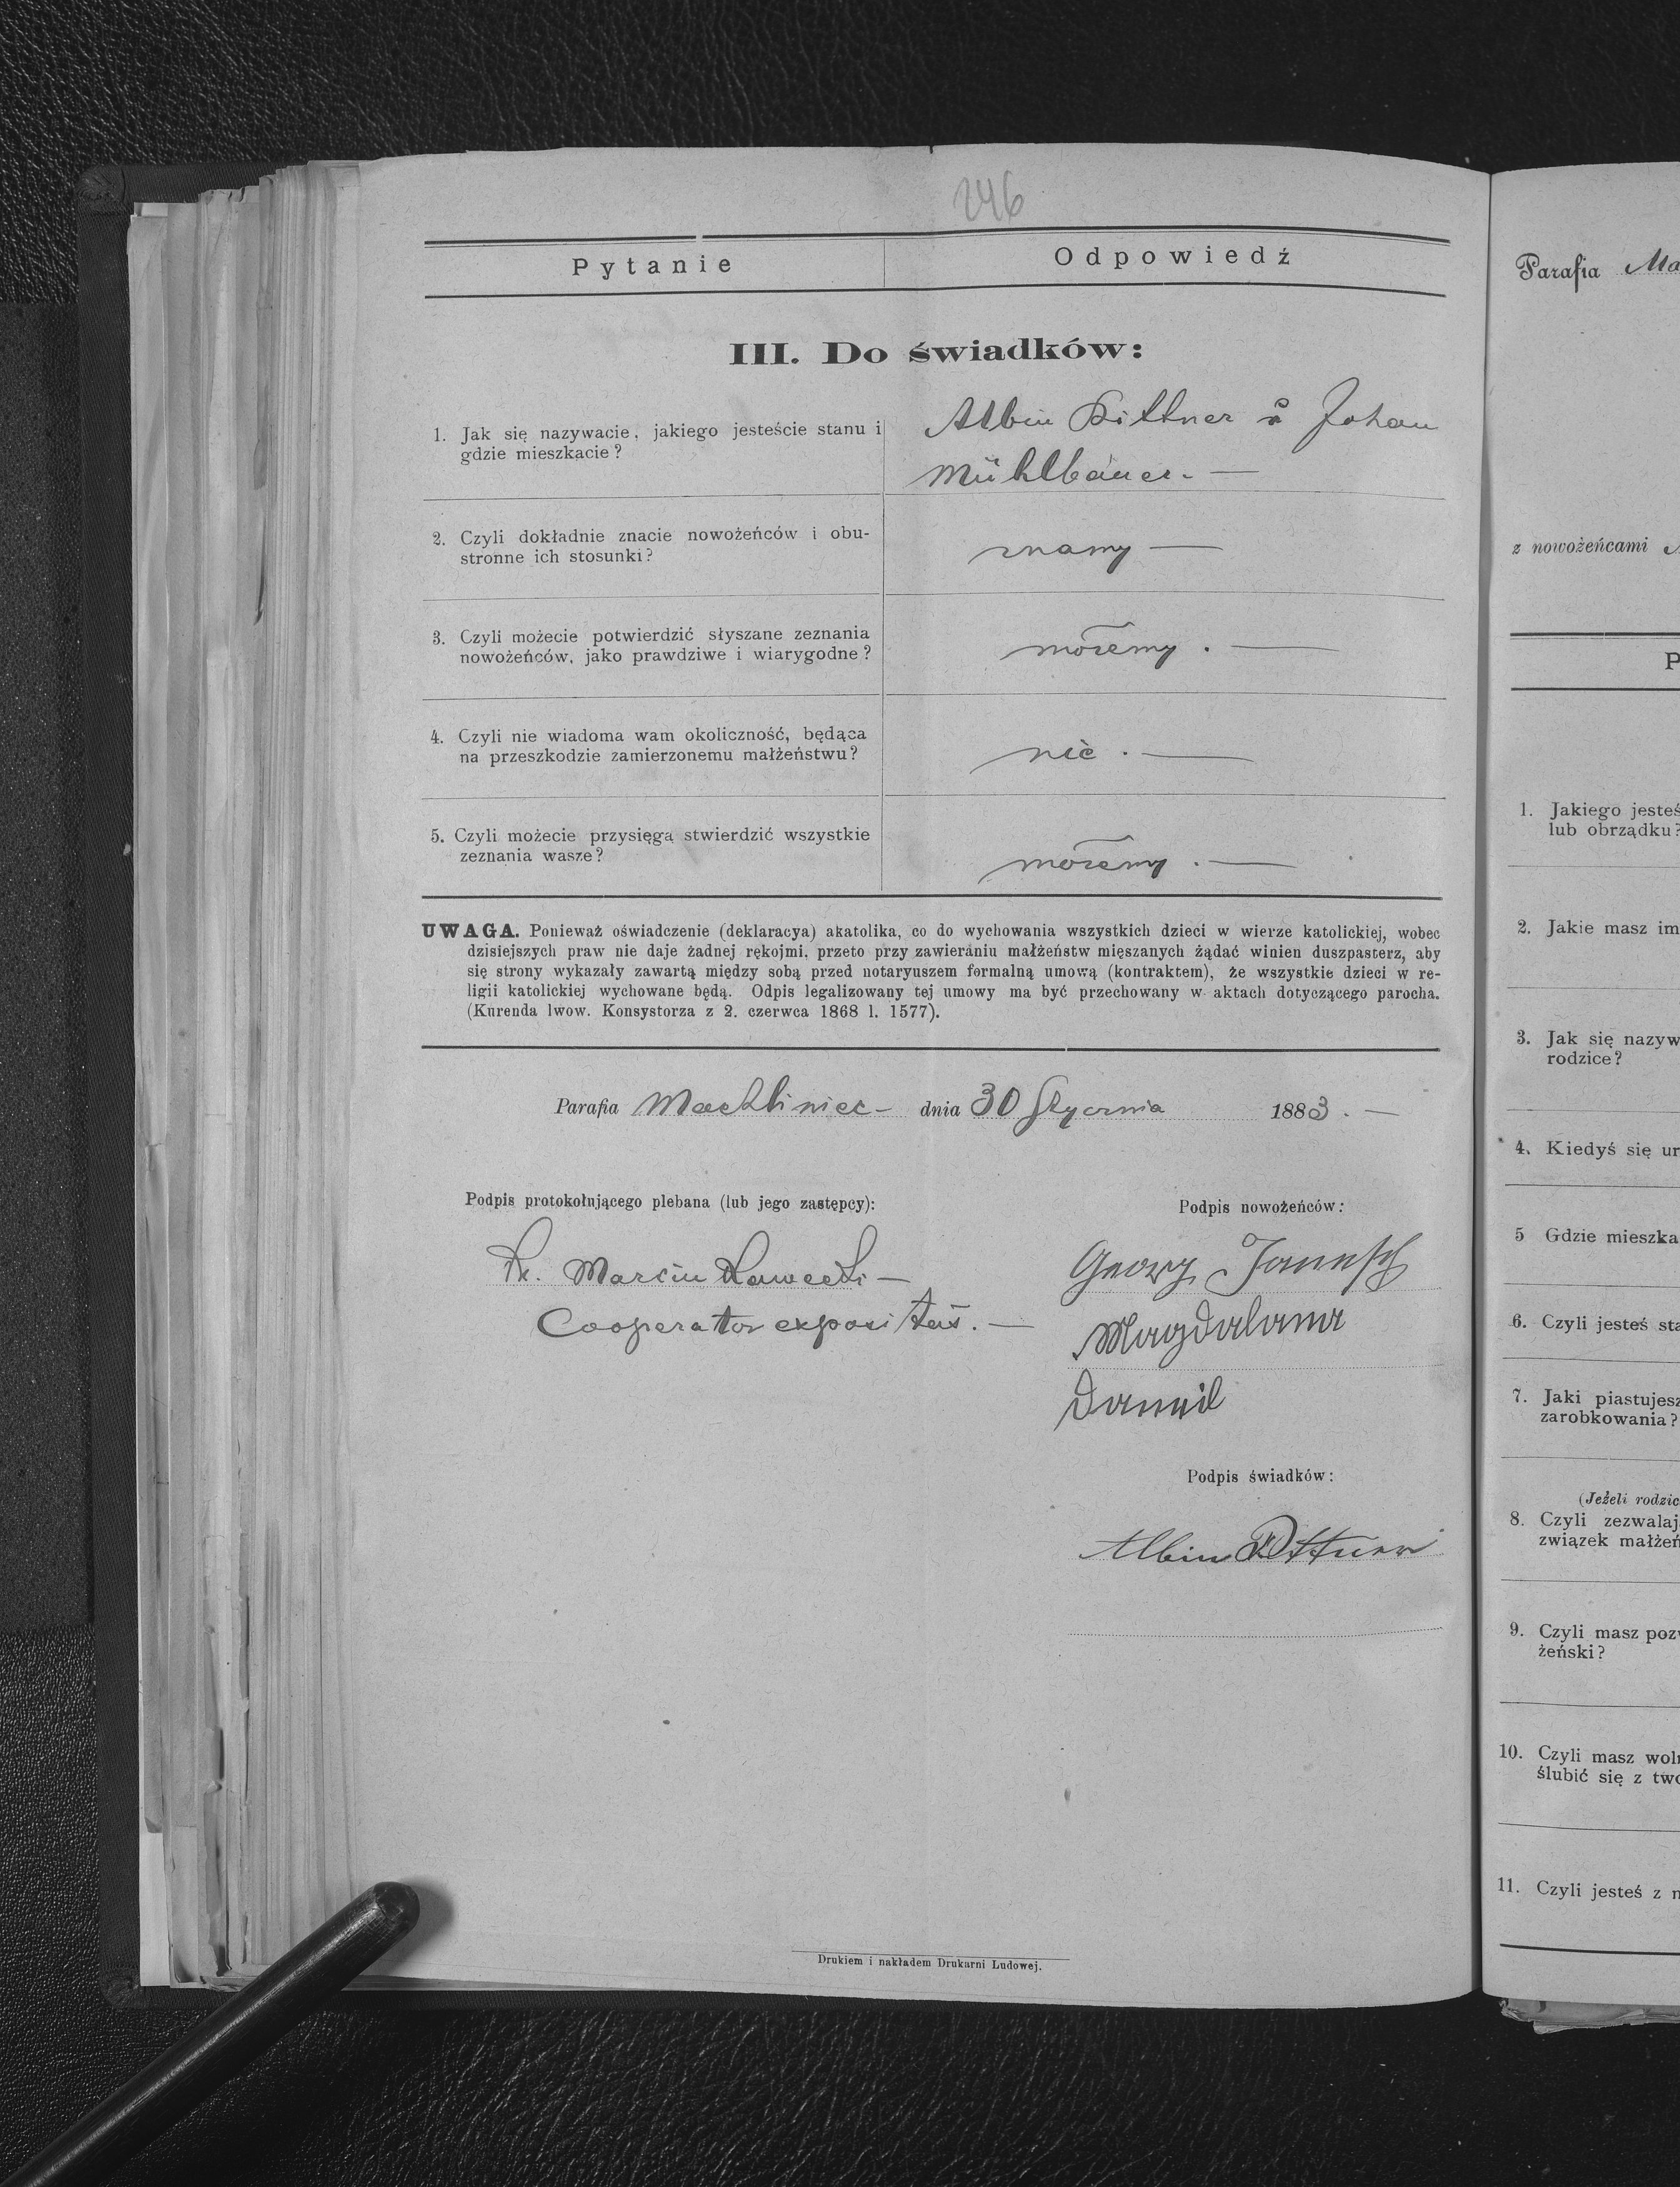 246
Pytanie
Odpowiedź
III. Do świadków:
1. Jak się nazywacie, jakiego jesteście stanu i
gdzie mieszkacie?
Albin Bittner i Johan
Mühlbauer. —
2. Czyli dokładnie znacie nowożeńców i obu-
stronne ich stosunki?
znamy —
3. Czyli możecie potwierdzić słyszane zeznania
nowożeńców, jako prawdziwe i wiarygodne?
możemy . —
4. Czyli nie wiadoma wam okoliczność, będąca
na przeszkodzie zamierzonemu małżeństwu?
nie . —
5. Czyli możecie przysięgą stwierdzić wszystkie
zeznania wasze?
możemy . —
UWAGA. Ponieważ oświadczenie (deklaracya) akatolika, co do wychowania wszystkich dzieci w wierze katolickiej, wobec
dzisiejszych praw nie daje żadnej rękojmi, przeto przy zawieraniu małżeństw mięszanych żądać winien duszpasterz, aby
się strony wykazały zawartą między sobą przed notaryuszem formalną umową (kontraktem), że wszystkie dzieci w re-
ligii katolickiej wychowane będą. Odpis legalizowany tej umowy ma być przechowany w aktach dotyczącego parocha.
(Kurenda lwow. Konsystorza z 2. czerwca 1868 l. 1577).
Parafia Machliniec - dnia 30 Stycznia 1883 . —
Podpis protokołującego plebana (lub jego zastępcy):
X. Marcin —
Cooperator expositus. —
Podpis nowożeńców:
Georg
Magdalena
Daniel
Podpis świadków:
Albin Bittner
Drukiem i nakładem Drukarni Ludowej.
Parafia Ma
z nowożeńcami
P
1. Jakiego jesteś
lub obrządku?
2. Jakie masz im
3. Jak się nazyw
rodzice?
4. Kiedyś się ur
5 Gdzie mieszka
6. Czyli jesteś sta
7. Jaki piastujesz
zarobkowania?
(Jeżeli rodzic
8. Czyli zezwalaj
związek małżeń
9. Czyli masz pozw
żeński?
10. Czyli masz woln
ślubić się z two
11. Czyli jesteś z n